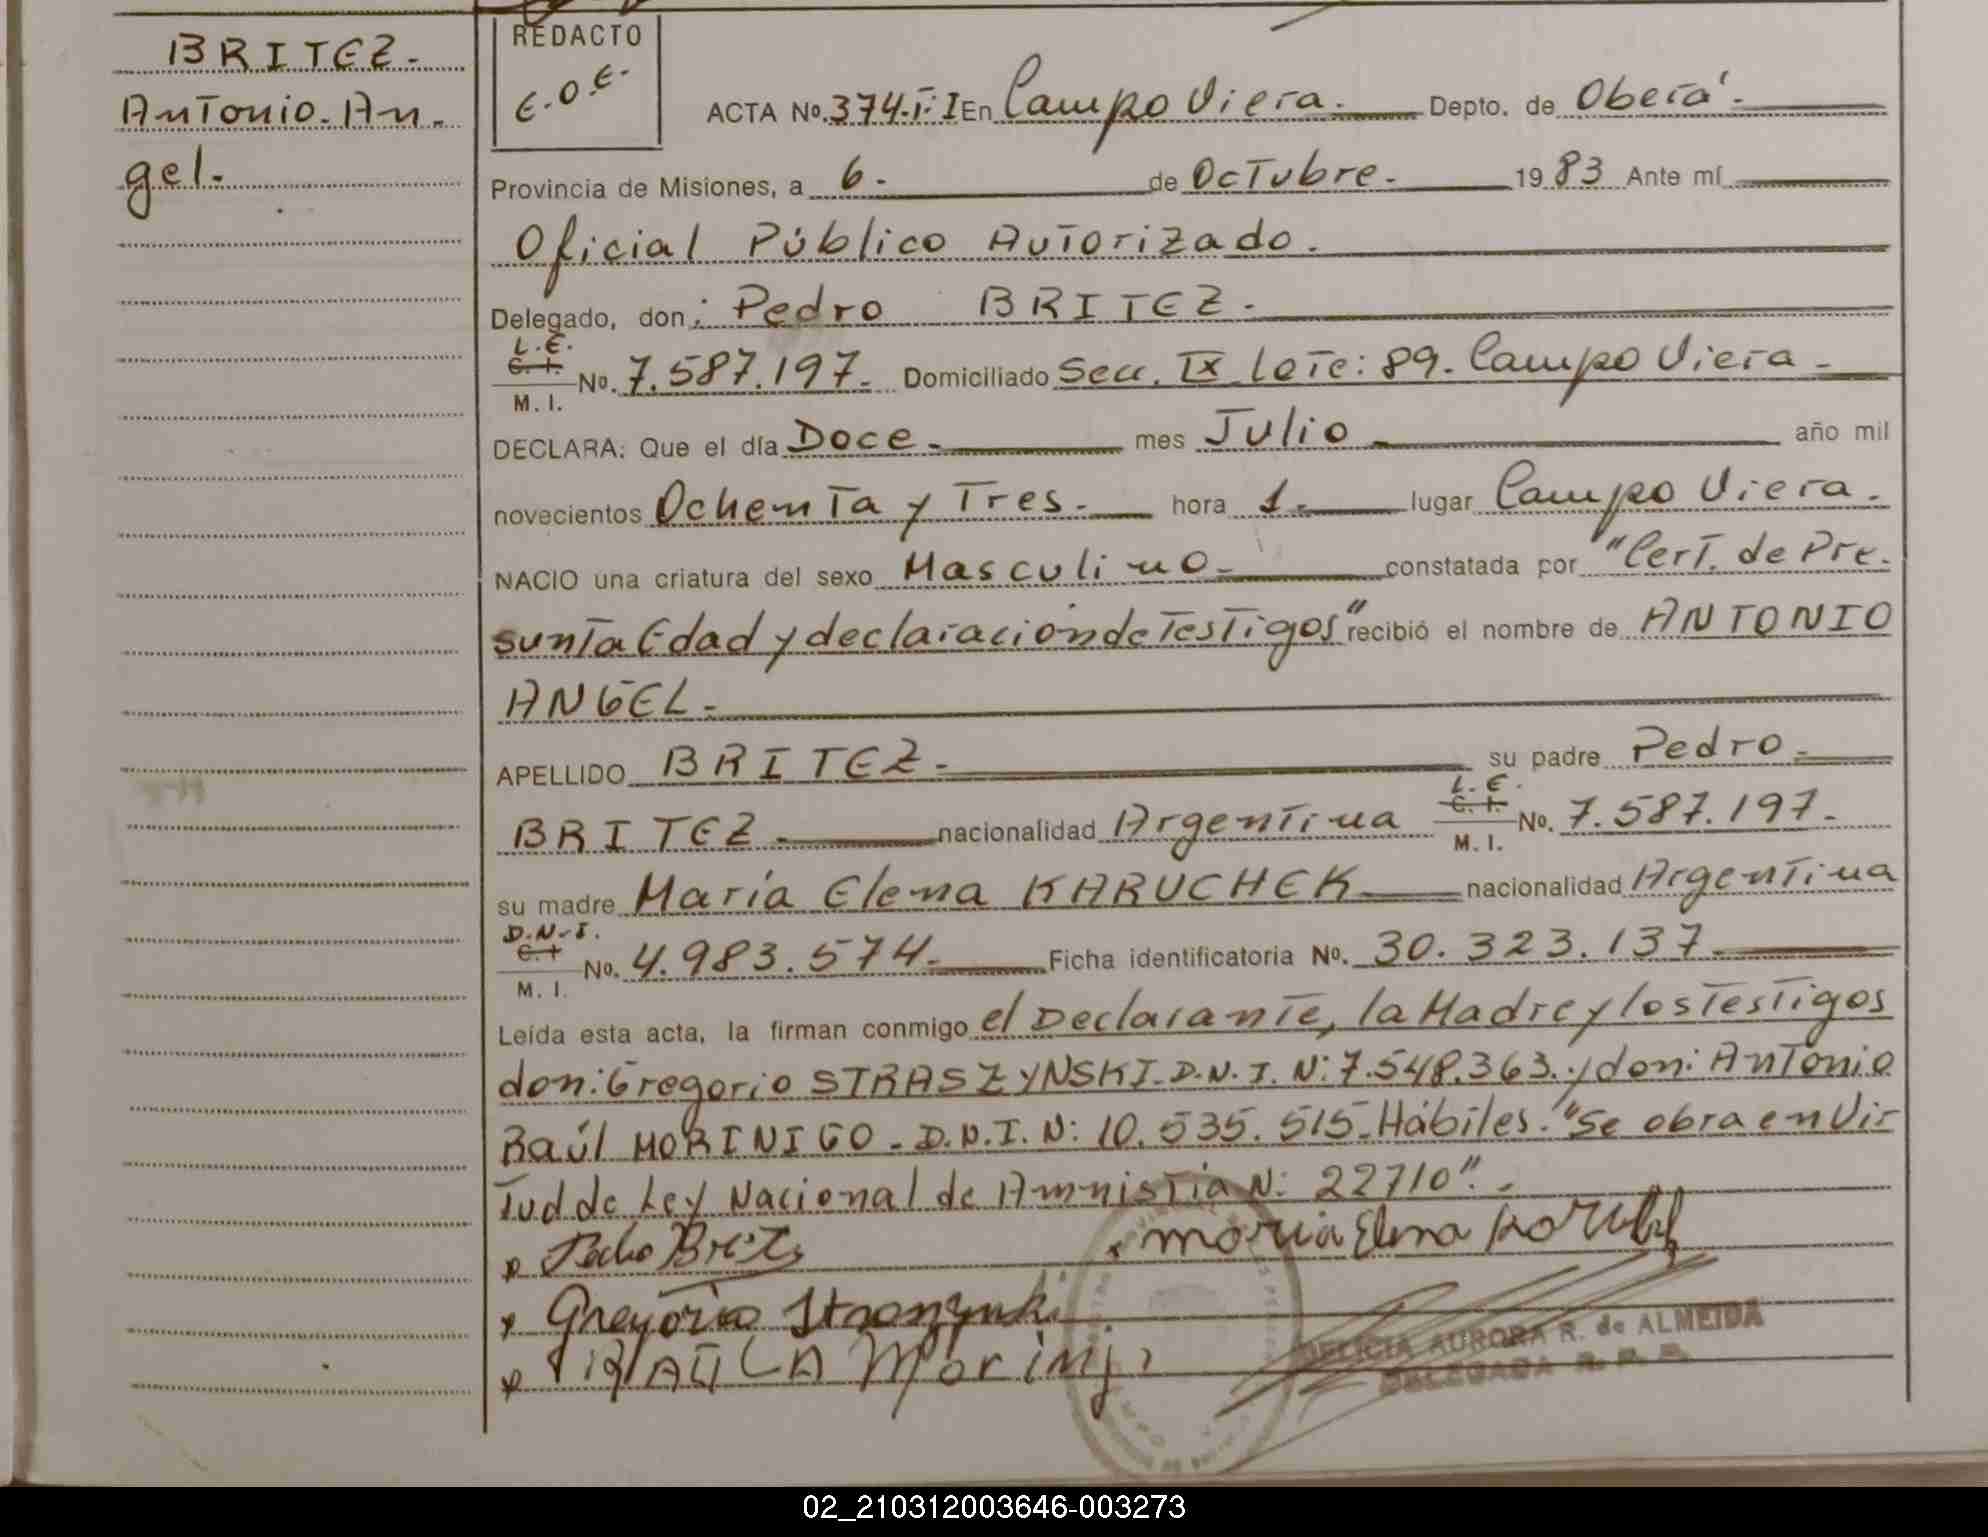 BRITEZ.
Antonio. An.
gel.
REDACTO
E.O.E.
ACTA No. 374.T: I En Campo Viera. Depto. de Oberá.
Provincia de Misiones, a 6. de Octubre. 1983 Ante mí
Oficial Público Autorizado.
Delegado, don: Pedro BRITEZ.
L.E.
C. I.
M. I.
No. 7.587.197. Domiciliado Secc. IX Lote: 89. Campo Viera.
DECLARA: Que el día Doce. mes Julio año mil
novecientos Ochenta y Tres. hora 1. lugar Campo Viera.
NACIO una criatura del sexo Masculino. constatada por "Cert. de Pre.
sunta Edad y declaración de Testigos" recibió el nombre de ANTONIO
ANGEL.
APELLIDO BRITEZ. su padre Pedro.
BRITEZ. nacionalidad Argentina L.E. C. I. M. I. No. 7.587.197.
su madre María Elena KARUCHEK nacionalidad Argentina
D.N.I.
C. I.
M. I.
No. 4.983.574. Ficha identificatoria No. 30.323.137.
Leída esta acta, la firman conmigo el Declarante, la Madre y los Testigos
don: Gregorio STRASZYNSKI. D.N.I. N: 7.548.363. y don: Antonio
Raúl MORINIGO. D.N.I. N: 10.535.515. Hábiles. "Se obra en Vir
tud de Ley Nacional de Amnistía N: 22710".
Pedro Britez
maria Elena
Gregorio
RAUL A Morini
FELICIA AURORA R. de ALMEIDA
DELEGADA R. P. P.
02_210312003646-003273